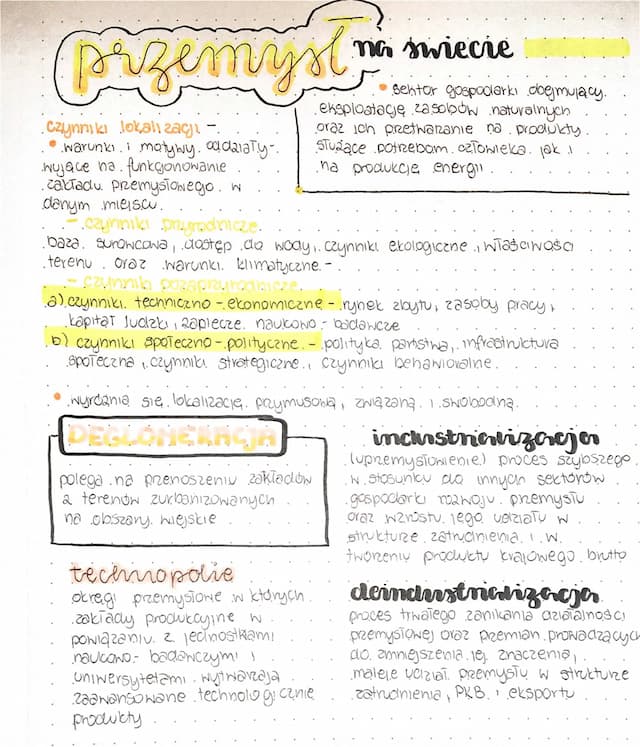 przemysł na świecie
• sektor gospodarki obejmujący
eksploatację zasobów naturalnych
oraz ich przetwarzanie na produkty
służące potrzebom człowieka jak i
na produkcję energii
czynniki lokalizacji -
• warunki i motywy oddziały-
wujące na funkcjonowanie
zakładu przemysłowego w
danym miejscu
- czynniki przyrodnicze
baza surowcowa, dostęp do wody, czynniki ekologiczne, właściwości
terenu oraz warunki klimatyczne -
- czynniki pozaprzyrodnicze
a) czynniki techniczno - ekonomiczne - rynek zbytu, zasoby pracy,
kapitał ludzki, zaplecze naukowo - badawcze
b) czynniki społeczno - polityczne - polityka państwa, infrastruktura
społeczna, czynniki strategiczne, czynniki behawioralne
• wyróżnia się lokalizację przymusową, związaną i swobodną
DEGLOMERACJA
polega na przenoszeniu zakładów
z terenów zurbanizowanych
na obszary wiejskie
industrializacja
(uprzemysłowienie) proces szybszego
w stosunku do innych sektorów
gospodarki rozwoju przemysłu
oraz wzrostu jego udziału w
strukturze zatrudnienia i w
tworzeniu produktu krajowego brutto
technopolie
okręgi przemysłowe w których
zakłady produkcyjne w
powiązaniu z jednostkami
naukowo - badawczymi i
uniwersytetami wytwarzają
zaawansowane technologicznie
produkty
deindustrializacja
proces trwałego zanikania działalności
przemysłowej oraz przemian prowadzących
do zmniejszenia jej znaczenia,
maleje udział przemysłu w strukturze
zatrudnienia, PKB i eksportu